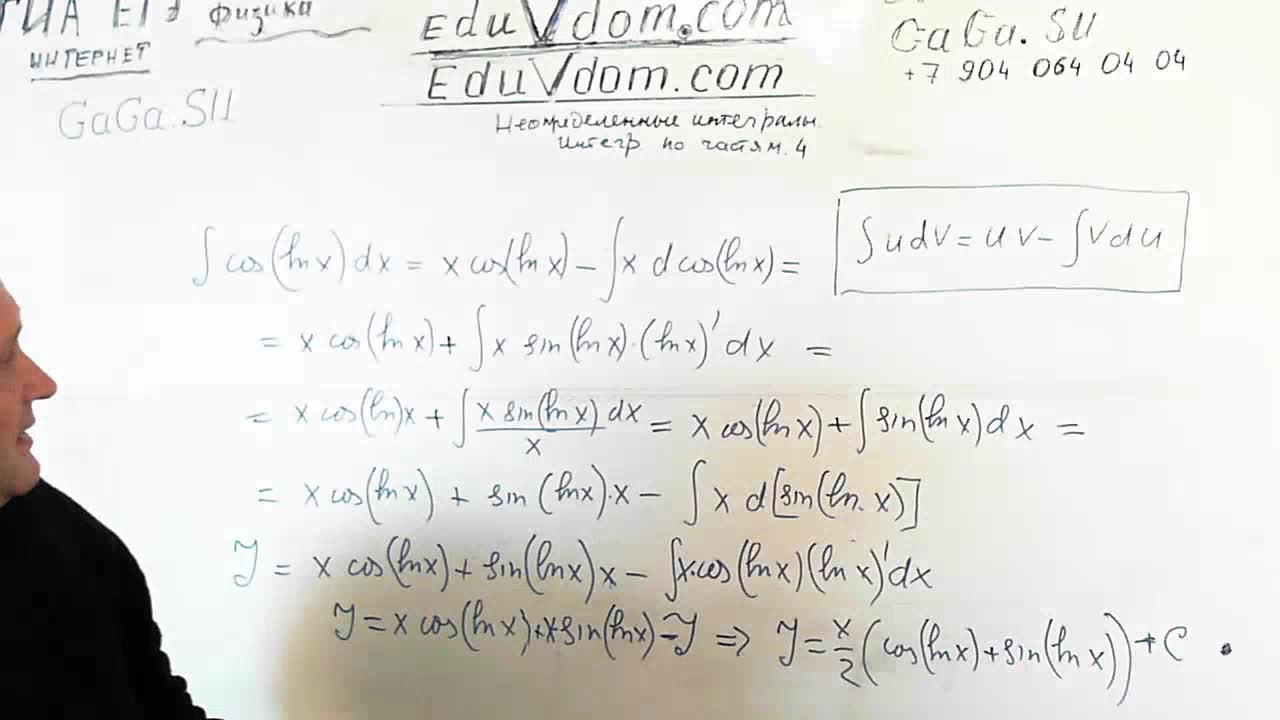 ГИА ЕГЭ физика
ИНТЕРНЕТ
GaGa.SU
EduVdom.com
EduVdom.com
Неопределенные интегралы.
Интегр по частям. 4
GaGa.SU
+7 904 064 04 04
∫ u dv = u v − ∫ v d u
∫ cos(ln x) dx = x cos(ln x) − ∫ x d cos(ln x) =
= x cos(ln x) + ∫ x sin(ln x)·(ln x)' dx =
= x cos(ln)x + ∫ x sin(ln x) dx / x = x cos(ln x) + ∫ sin(ln x) dx =
= x cos(ln x) + sin (ln x)·x − ∫ x d[sin(ln. x)]
J = x cos(ln x) + sin(ln x) x − ∫ x·cos(ln x)(ln x)' dx
J = x cos(ln x) + x sin(ln x) − J ⇒ J = x/2 (cos(ln x) + sin(ln x)) + C .